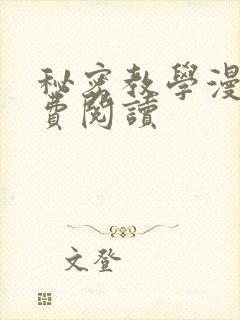 秘密教學漫
費閱讀
文登